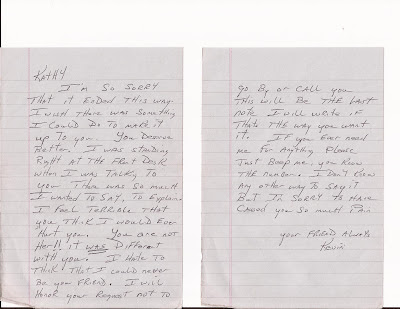 Kathy
I'm so sorry
That it ended this way
I wish there was something
I could do to make it
up to you. You deserve
Better. I was standing
Right at the Front Desk
when I was talking to
you. There was so much
I wanted to say, to explain
I feel terrible that
you think I would ever
Hurt you. You are not
Her!! it was different
with you. I Hate to
Think that I could never
be your friend. I will
Honor your Request not to
go By or call you
This will be the last
note I will write if
thats the way you want
it. If you ever need
me for anything please
Just Beep me, you know
the number. I don't know
any other way to say it
But I'm sorry to have
caused you so much pain
your friend always
Kevin